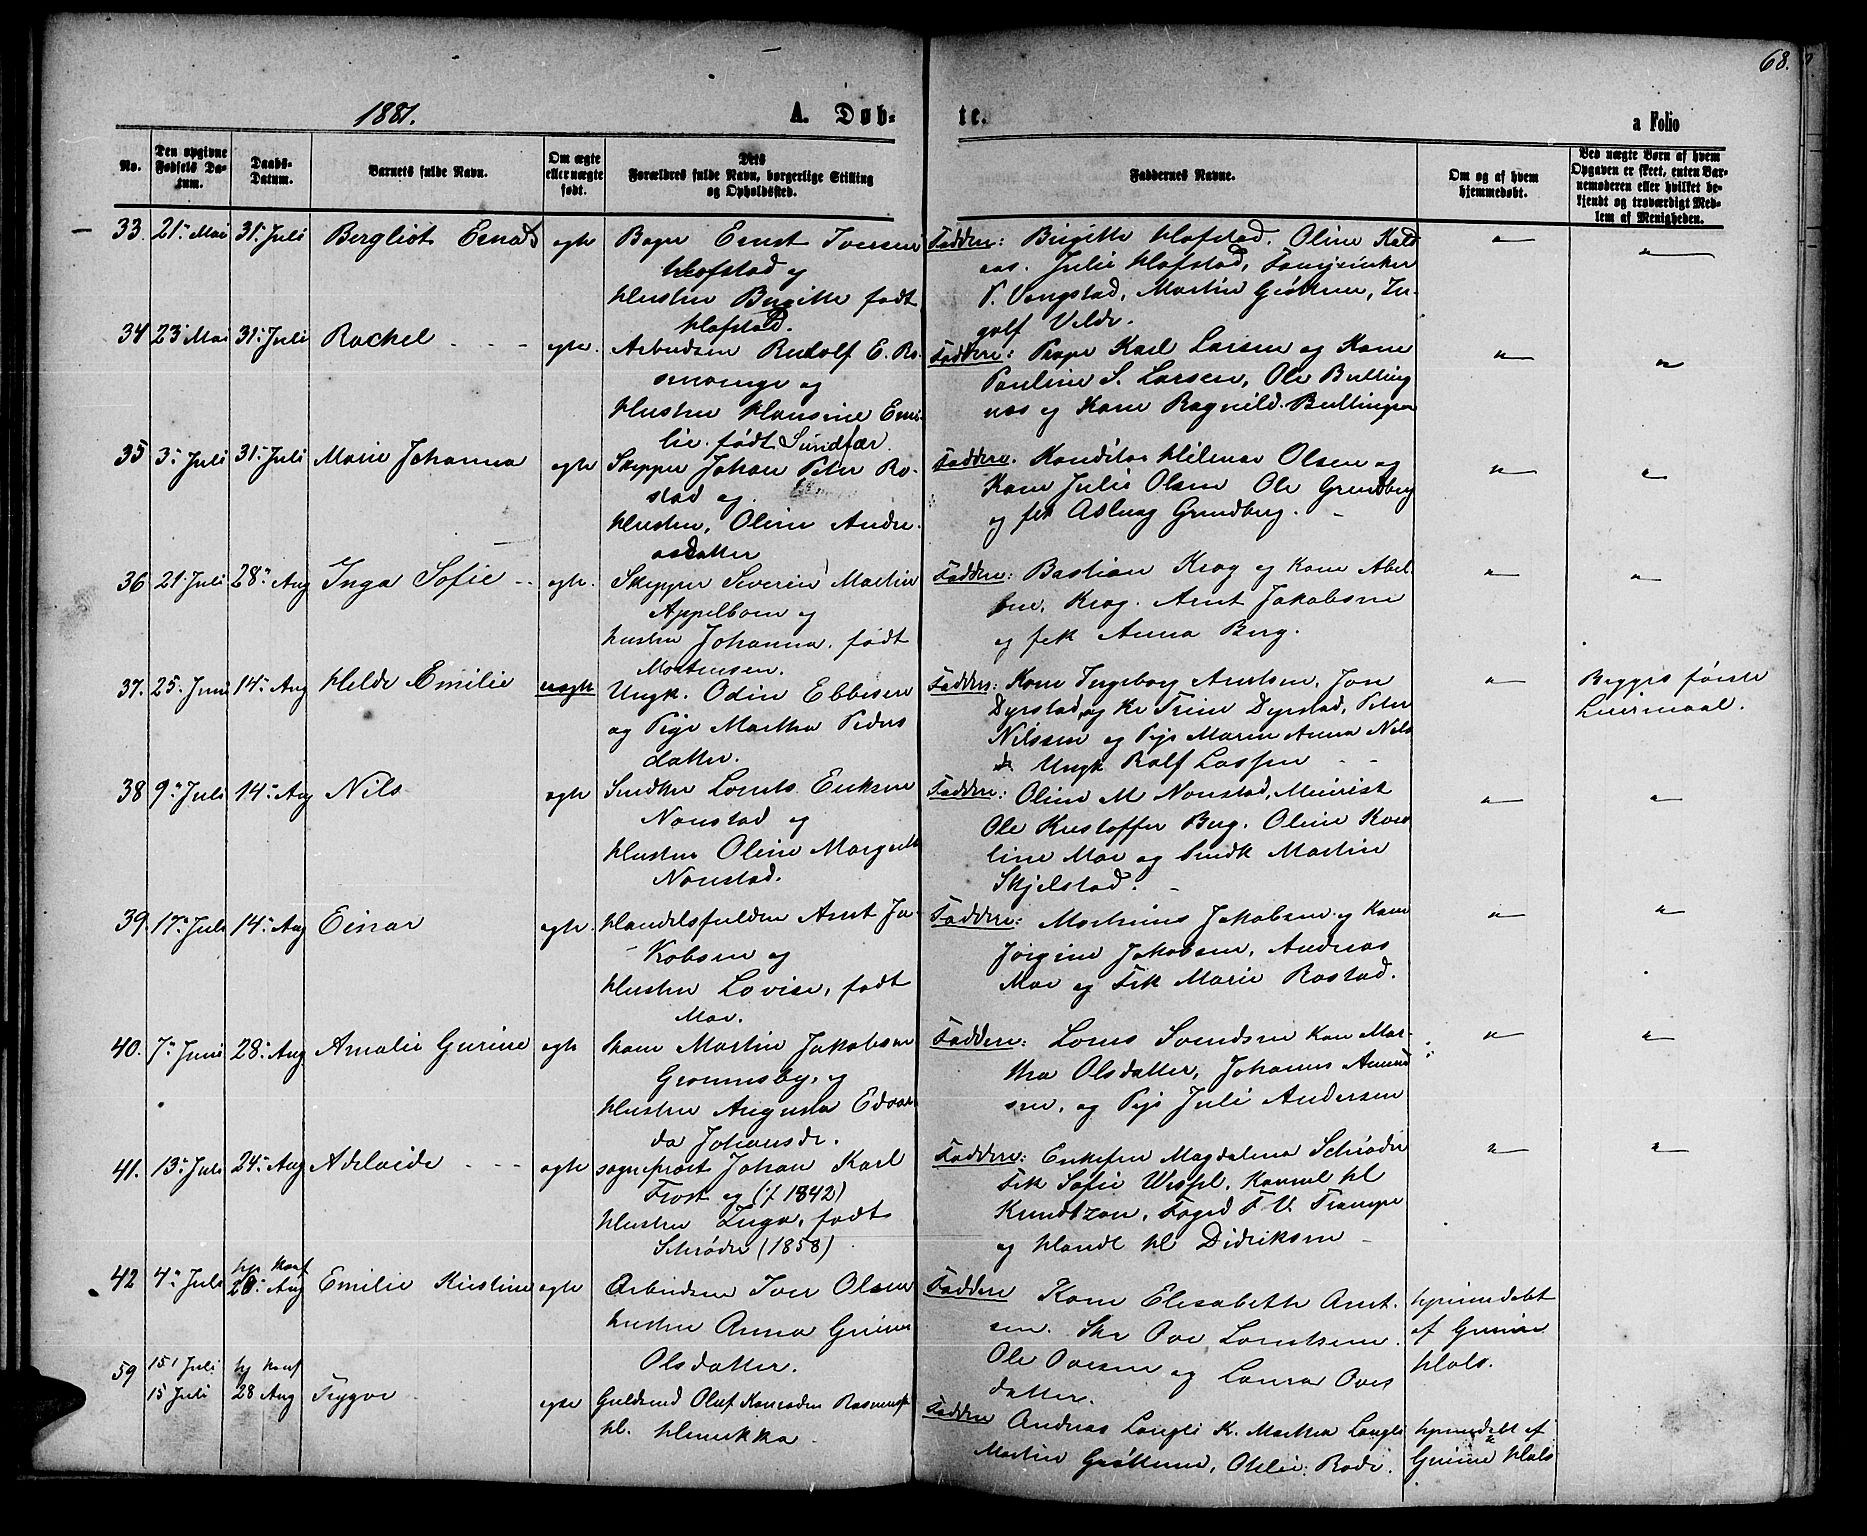 68.
1881.
A. Døb-
te.
a Folio
No.
Den opgivne Fødsels Da-
tum.
Daabs-
Datum.
Barnets fulde Navn.
Om ægte
eller uægte
født.
Dets
Forældres fulde Navn, borgerlige Stilling
og Opholdssted.
Faddernes Navne.
Om og af hvem
hjemmedøbt.
Ved uægte Børn af hvem
Opgaven er skeet, enten Bar-
nemoderen eller hvilket be-
kjendt og troværdigt Med-
lem af Menigheden.
33. 21. Mai 31. Juli Bergliot ægte Bager Ernst Iversen
Hofstad og
Hustru Birgitte født
Hofstad.
Faddere: Birgitte Hofstad. Oline
Julie Hofstad,
P. Vengstad, Martin Grøttem, In-
golf Velde.
34 23 Mai 31. Juli Rachel ægte. Arbeidsm Rudolf E. Ro-
smoenge og
Hustru Hansine Emi-
lie. født Sundfær
Faddere: Karl Larsen og Kone
Pauline S. Larsen, Ole Bulling
næs og Kone Ragnild. Bullingnæs
35 3. Juli 31. Juli Marie Johanna ægte Skipper Johan Peter Ro-
stad og
Hustru, Oline Andre-
asdatter
Faddere. Konditor Hilmar Olsen og
Kone Julie Olsen Ole Grundberg
og frk Aslaug Grundberg.
36 21. Juli 28. Aug Inga Sofie ægte. Skipper Severin Martin
Appelbom og
hustru Johanna, født
Mortensen.
Faddere: Bastian Krog og Kone Abel-
Krog. Arnt Jakobsen
og frk Anna Berg.
37. 25. Juni 14. Aug Helde Emilie uægte Ungk. Odin Ebbesen
og Pige Martha Peders
datter.
Faddere: Kone Ingeborg Arntsen, Jon
Dyrstad, og Ke Trine Dyrstad, Peter
Nilssen og Pige Maren Anna Nils
d. Ungk Rolf Lassen
Begges første
Leiermaal.
38 9. Juli 14. Aug Nils ægte Snedker Lornts Eriksen
Nonstad og
Hustru Oline Margrete
Nonstad.
Faddere: Oline M Nonstad, Minist
Ole Kristoffer Berg. Oline Karo
line Moe og Snedk Martin
Skjelstad.
39. 17. Juli 14. Aug Einar ægte. Handelsfuldm Arnt Ja-
kobsen og
Hustru Lovise, født
Moe.
Faddere: Martinus Jakobsen og Kone
Jørgine Jakobsen, Andreas
Moe og Frk Marie Rostad.
40. 7. Juni 28. Aug Amalie Gurine ægte Skom Martin Jakobsen
og
Hustru Augusta Edvar
da Johansdr.
Faddere: Lorns Svendsen Kone Mar-
tha Olsdatter, Johannes Amund
sen, og Pige Juli Andersen
41. 13. Juli 24. Aug Adelaide ægte sogneprest Johan Karl
Frost og (f 1842)
Hustru Inga, født
Schrøder (1858)
Faddere: Enkefru Magdalena Schrøder
Frk Sofie Wessel, Konsul hl
Knudtzon, Foged F V. Trampe
og Handl hl Didriksen
42 4. Juli hj konf
28. Aug Emilie Kirstine ægte Arbeidsm Iver Olsen
hustru Anna Gurine
Olsdatter.
Faddere Kone Elisabeth Arnt-
sen. Ske Ove Lorntsen.
Ole Ovesen og Laura Oves
datter.
hjemmedøbt
af Gurine
Hals.
59 15 Juli
15 Juli hj konf
28 Aug Trygve ægte Guldsmed Oluf Konradin Rosmuss
hl. Henrikka
Faddere Andreas Langli K. Martha Langli
Martin Grøttem, Rode.
hjemmedøbt af
Gurine Hals